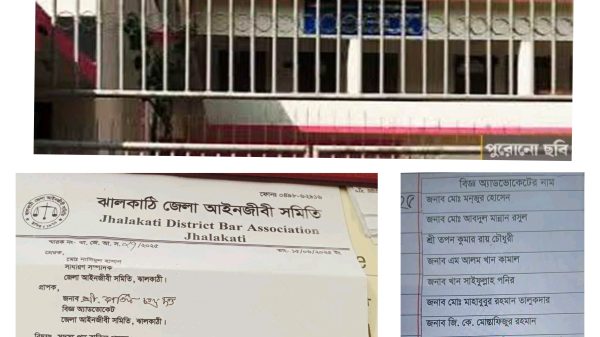 পুরোনো ছবি
ফোনঃ ০৪৯৮-৬২৯১৬
ঝালকাঠি জেলা আইনজীবী সমিতি
Jhalakati District Bar Association
Jhalakati
স্মারক নং- ঝা. জে. আ. স.
প্রেরক,
সাধারণ সম্পাদক
জেলা আইনজীবী সমিতি, ঝালকাঠি।
প্রাপক,
জনাব
বিজ্ঞ অ্যাডভোকেট
জেলা আইনজীবী সমিতি, ঝালকাঠি।
বিজ্ঞ অ্যাডভোকেটের নাম
জনাব মোঃ মনজুর হোসেন
জনাব মোঃ আবদুল মান্নান রসুল
শ্রী তপন কুমার রায় চৌধুরী
জনাব এম আলম খান কামাল
জনাব খান সাইফুল্লাহ পনির
জনাব মোঃ মাহাবুবুর রহমান তালুকদার
জনাব জি. কে. মোস্তাফিজুর রহমান